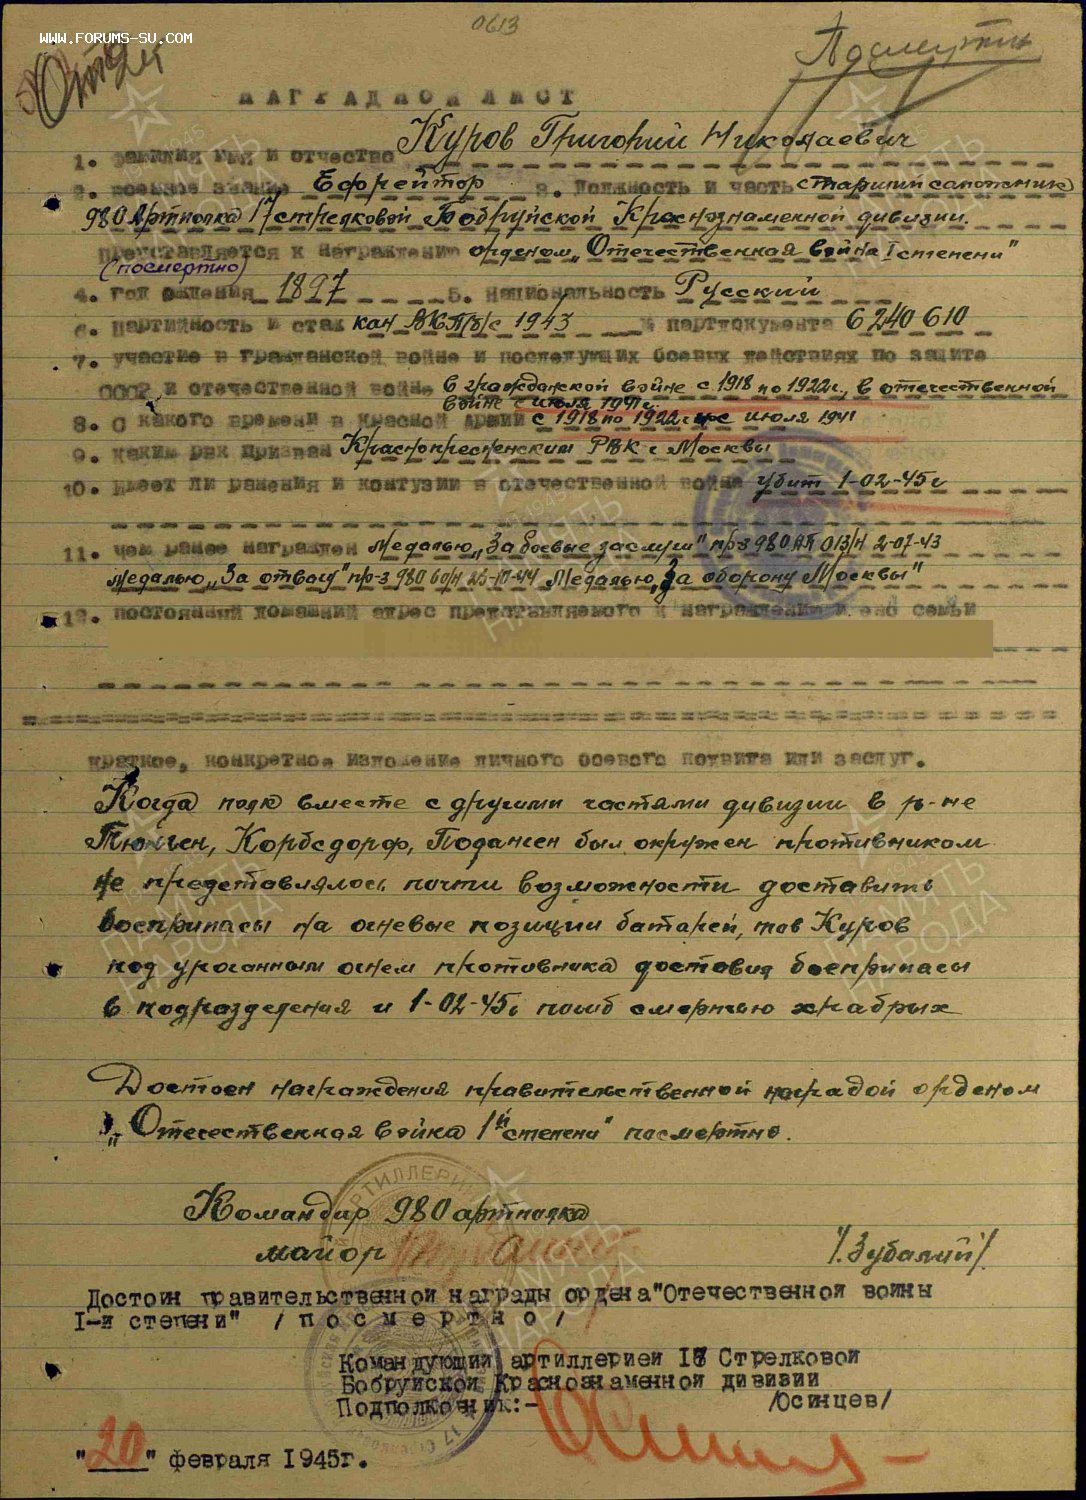 0613
www.forums-su.com
Посмертно
НАГРАДНОЙ ЛИСТ
1. Фамилия имя и отчество Куров Григорий Николаевич
2. военное звание Ефрейтор 3. Должность и часть старший сапожник
980 Артполка 17 стрелковой Бобруйской Краснознаменной дивизии.
представляется к награждению орденом „Отечественная война I степени"
(посмертно)
4. год рождения 1897 5. национальность Русский
6. партийность и стаж кан ВКП/б/с 1943 № партдокумента 6240610
7. участие в гражданской войне и последующих боевых действиях по защите
СССР и отечественной войне в гражданской войне с 1918 по 1922г, в отечественной
войне с июля 1941г.
8. С какого времени в Красной Армии с 1918 по 1922г и с июля 1941
9. каким рвк призван Краснопресненским РВК г Москвы
10. имеет ли ранения и контузии в отечественной войне убит 1-02-45г
11. чем ранее награжден Медалью „За боевые заслуги" пр-з 980 АП 013/н 2-07-43
медалью „За отвагу" пр-з 980 60/н 25-10-44 Медалью „За оборону Москвы"
12. постоянный домашний адрес представляемого к награждению и его семьи
краткое, конкретное изложение личного боевого подвига или заслуг.
Когда полк вместе с другими частями дивизии в р-не
Тюнген, Корбсдорф, Подансен был окружен противником
не представлялось почти возможности доставить
боеприпасы на огневые позиции батарей, тов Куров
под ураганным огнем противника доставил боеприпасы
в подразделения и 1-02-45г погиб смертью храбрых
Достоен награждения правительственной наградой орденом
„Отечественная война 1й степени" посмертно.
Командир 980 артполка
майор /Зубалий/.
Достоин правительственной награды ордена"Отечественной войны
I-й степени" /посмертно/
Командующий артиллерией 17 Стрелковой
Бобруйской Краснознаменной дивизии
Подполковник:- /Осинцев/
"20" февраля 1945г.
ПАМЯТЬ
НАРОДА